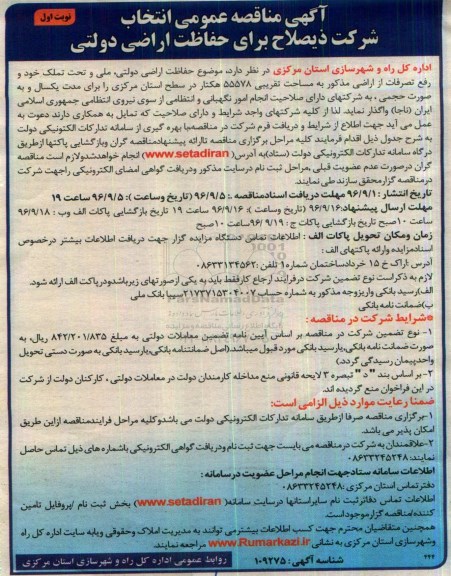 نوبت اول
آگهی مناقصه عمومی انتخاب
شرکت ذیصلاح برای حفاظت اراضی دولتی
اداره کل راه و شهرسازی استان مرکزی در نظر دارد، موضوع حفاظت اراضی دولتی، ملی و تحت تملک خود و
رفع تصرفات از اراضی مذکور به مساحت تقریبی ۵۵۵۷۸ هکتار در سطح استان مرکزی را برای مدت یکسال و به
صورت حجمی ، به شرکتهای دارای صلاحیت انجام امور نگهبانی و انتظامی از سوی نیروی انتظامی جمهوری اسلامی
ایران (ناجا) واگذار نماید. لذا از کلیه شرکتهای واجد شرایط و دارای صلاحیت که تمایل به همکاری دارند دعوت به
عمل می آید جهت اطلاع از شرایط و دریافت فرم شرکت در مناقصه‌با بهره گیری از سامانه تدارکات الکترونیکی دولت
به شرح جدول ذیل اقدام فرمایند کلیه مراحل برگزاری مناقصه تاارائه پیشنهادمناقصه گران وبازگشایی پاکتها ازطریق
درگاه سامانه تدارکات الکترونیکی دولت (ستاد)به آدرس(www.setadiran) انجام خواهدشدولازم است مناقصه
گران درصورت عدم عضویت قبلی ،مراحل ثبت نام درسایت مذکور ودریافت گواهی امضای الکترونیکی راجهت شرکت
درمناقصه گزارمحقق سازند طی نمایند.
تاریخ انتشار : ۹۶/۹/۱ مهلت دریافت اسنادمناقصه :. ۹۶/۹/۵ (تاریخ وساعت ): ۹۶/۹/۵ ساعت ۱۹
مهلت ارسال پیشنهاد:۹۶/۹/۱۶ (تاریخ وساعت ): ۹۶/۹/۱۶ ساعت ۱۹ تاریخ بازگشایی پاکات الف وب : ۹۶/۹/۱۸
ساعت ۱۰صبح تاریخ بازگشایی پاکات ج : ۹۶/۹/۱۹ساعت ۱۰صبح
زمان ومکان تحویل پاکات الف : اطلاعات تماس دستگاه مزایده گزار جهت دریافت اطلاعات بیشتر درخصوص
اسنادمزایده وارائه پاکتهای الف :
آدرس :اراک خ ۱۵ خردادساختمان شماره۱ تلفن :۰۸۶۳۳۱۳۴۵۶۲
لازم به ذکراست نوع تضمین شرکت درفرایند ارجاع کارفقط باید به یکی ازصورتهای زیرباشدودرپاکت الف ارائه شود.
الف)رسید بانکی واریزوجه مذکور به شماره حساب ۲۱۷۳۷۱۵۳۰۴۰۰۷سیبا بانک ملی
ب)ضمانت نامه بانکی
*شرایط شرکت در مناقصه :
۱- نوع تضمین شرکت در مناقصه بر اساس آیین نامه تضمین معاملات دولتی به مبلغ ۸۴۲/۲۰۱/۸۳۵ ریال، به
صورت ضمانت نامه بانکی،یارسید بانکی مورد قبول میباشد.(اصل ضمانتنامه بانکی یارسید بانکی به صورت دستی تحویل
واحدپیمان رسیدگی گردد.)
۲- بر اساس بند " د " تبصره ۳ لایحه قانونی منع مداخله کارمندان دولت در معاملات دولتی ، کارکنان دولت از شرکت
در این فراخوان منع گردیده اند.
ضمنا رعایت موارد ذیل الزامی است:
۱-برگزاری مناقصه صرفا ازطریق سامانه تدارکات الکترونیکی دولت می باشدوکلیه مراحل فرایندمناقصه ازاین طریق
امکان پذیر می باشد.
۲-علاقمندان به شرکت درمناقصه می بایست جهت ثبت نام ودریافت گواهی الکترونیکی باشماره های ذیل تماس حاصل
نمایند:۰۸۶۳۳۲۴۵۲۴۸
اطلاعات سامانه ستادجهت انجام مراحل عضویت درسامانه :
دفترتماس استان مرکزی :۰۸۶۳۳۲۴۵۲۴۸
اطلاعات تماس دفاترثبت نام سایراستانها درسایت سامانه( www.setadiran) بخش ثبت نام /پروفایل تامین
کننده/مناقصه گزارموجوداست.
همچنین متقاضیان محترم جهت کسب اطلاعات بیشترمی توانند به مدیریت املاک وحقوقی ویابه سایت اداره کل راه
وشهرسازی استان مرکزی به نشانی www.Rumarkazi.ir مراجعه نمایند.
۲۲۲ شناسه آگهی: ۱۰۹۲۷۵ روابط عمومی اداره کل راه و شهرسازی استان مرکزی